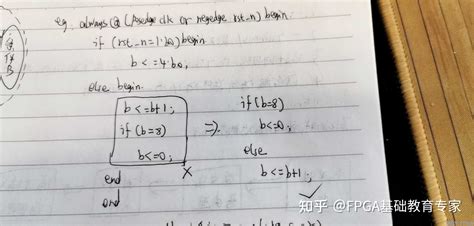 eg. always @ (posedge clk or negedge rst_n) begin
if (rst_n=1'b0) begin
b <= 4'b0;
else begin
b <= b+1; if (b=8)
if (b=8) => b<=0;
b<=0; else
end X b <= b+1;
end ✓
知乎 @FPGA基础教育专家